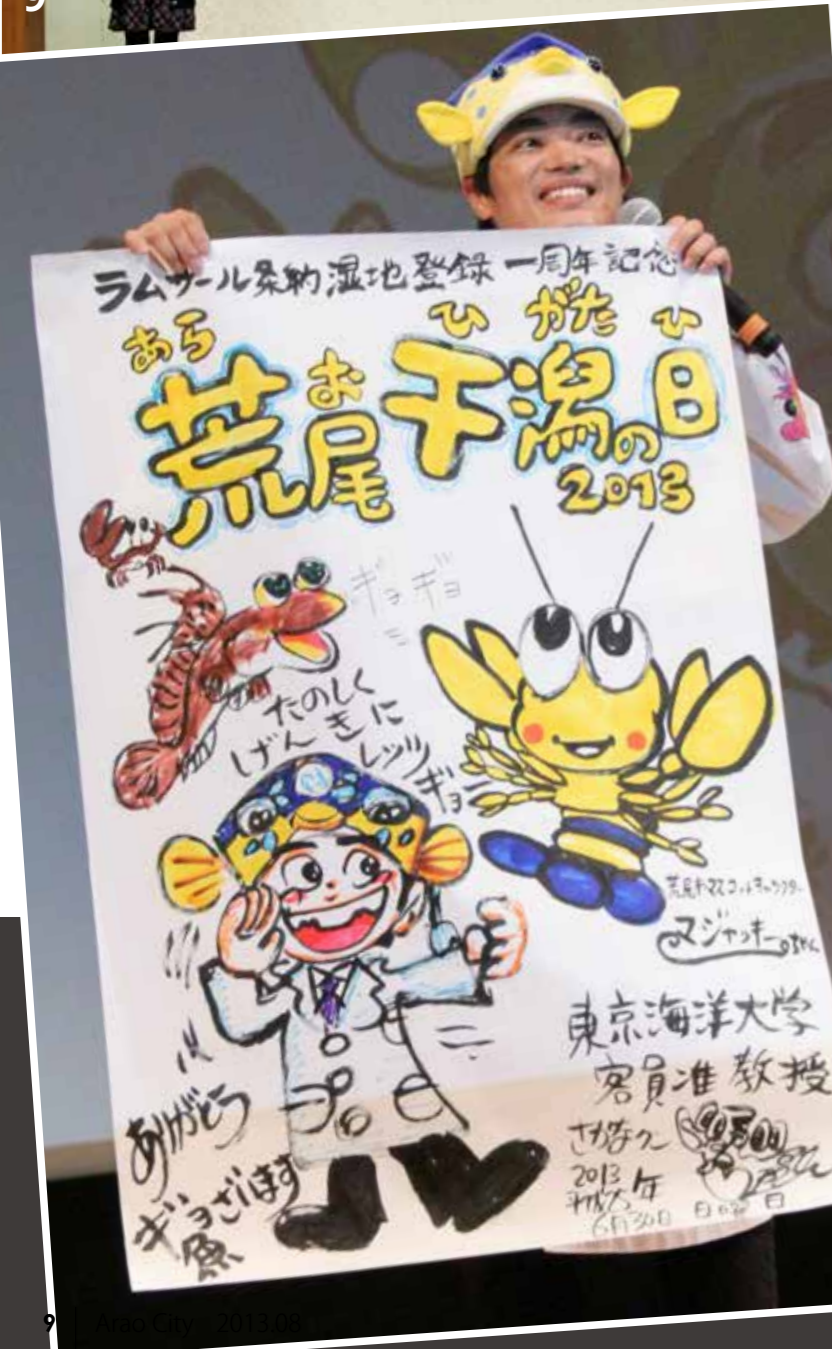 9
ラムサール条約湿地登録 一周年記念
あら お ひ がた ひ
荒尾干潟の日
2013
ギョギョ
たのしく
げんきに
レッツ
ギョー
荒尾市マスコットキャラクター
マジャッキーちゃん
東京海洋大学
客員准教授
さかなクン
2013年
6月30日
日
ありがとう
ギョざいます
魚
9 Arao City 2013.08